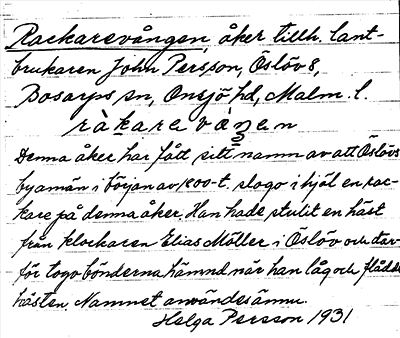 Rackarevången, åker tillh. lant-
brukaren John Persson, Öslöv 8,
Bosarps sn, Onsjö hd, Malm. l.
råkarevaŋen
Denna åker har fått sitt namn av att Öslövs
byamän i början av 1800-t. slogo ihjäl en rac-
kare på denna åker. Han hade stulit en häst
från klockaren Elias Möller i Öslöv och där-
för togo bönderna hämnd när han låg och flådde
hästen. Namnet användes ännu.
Helga Persson 1931